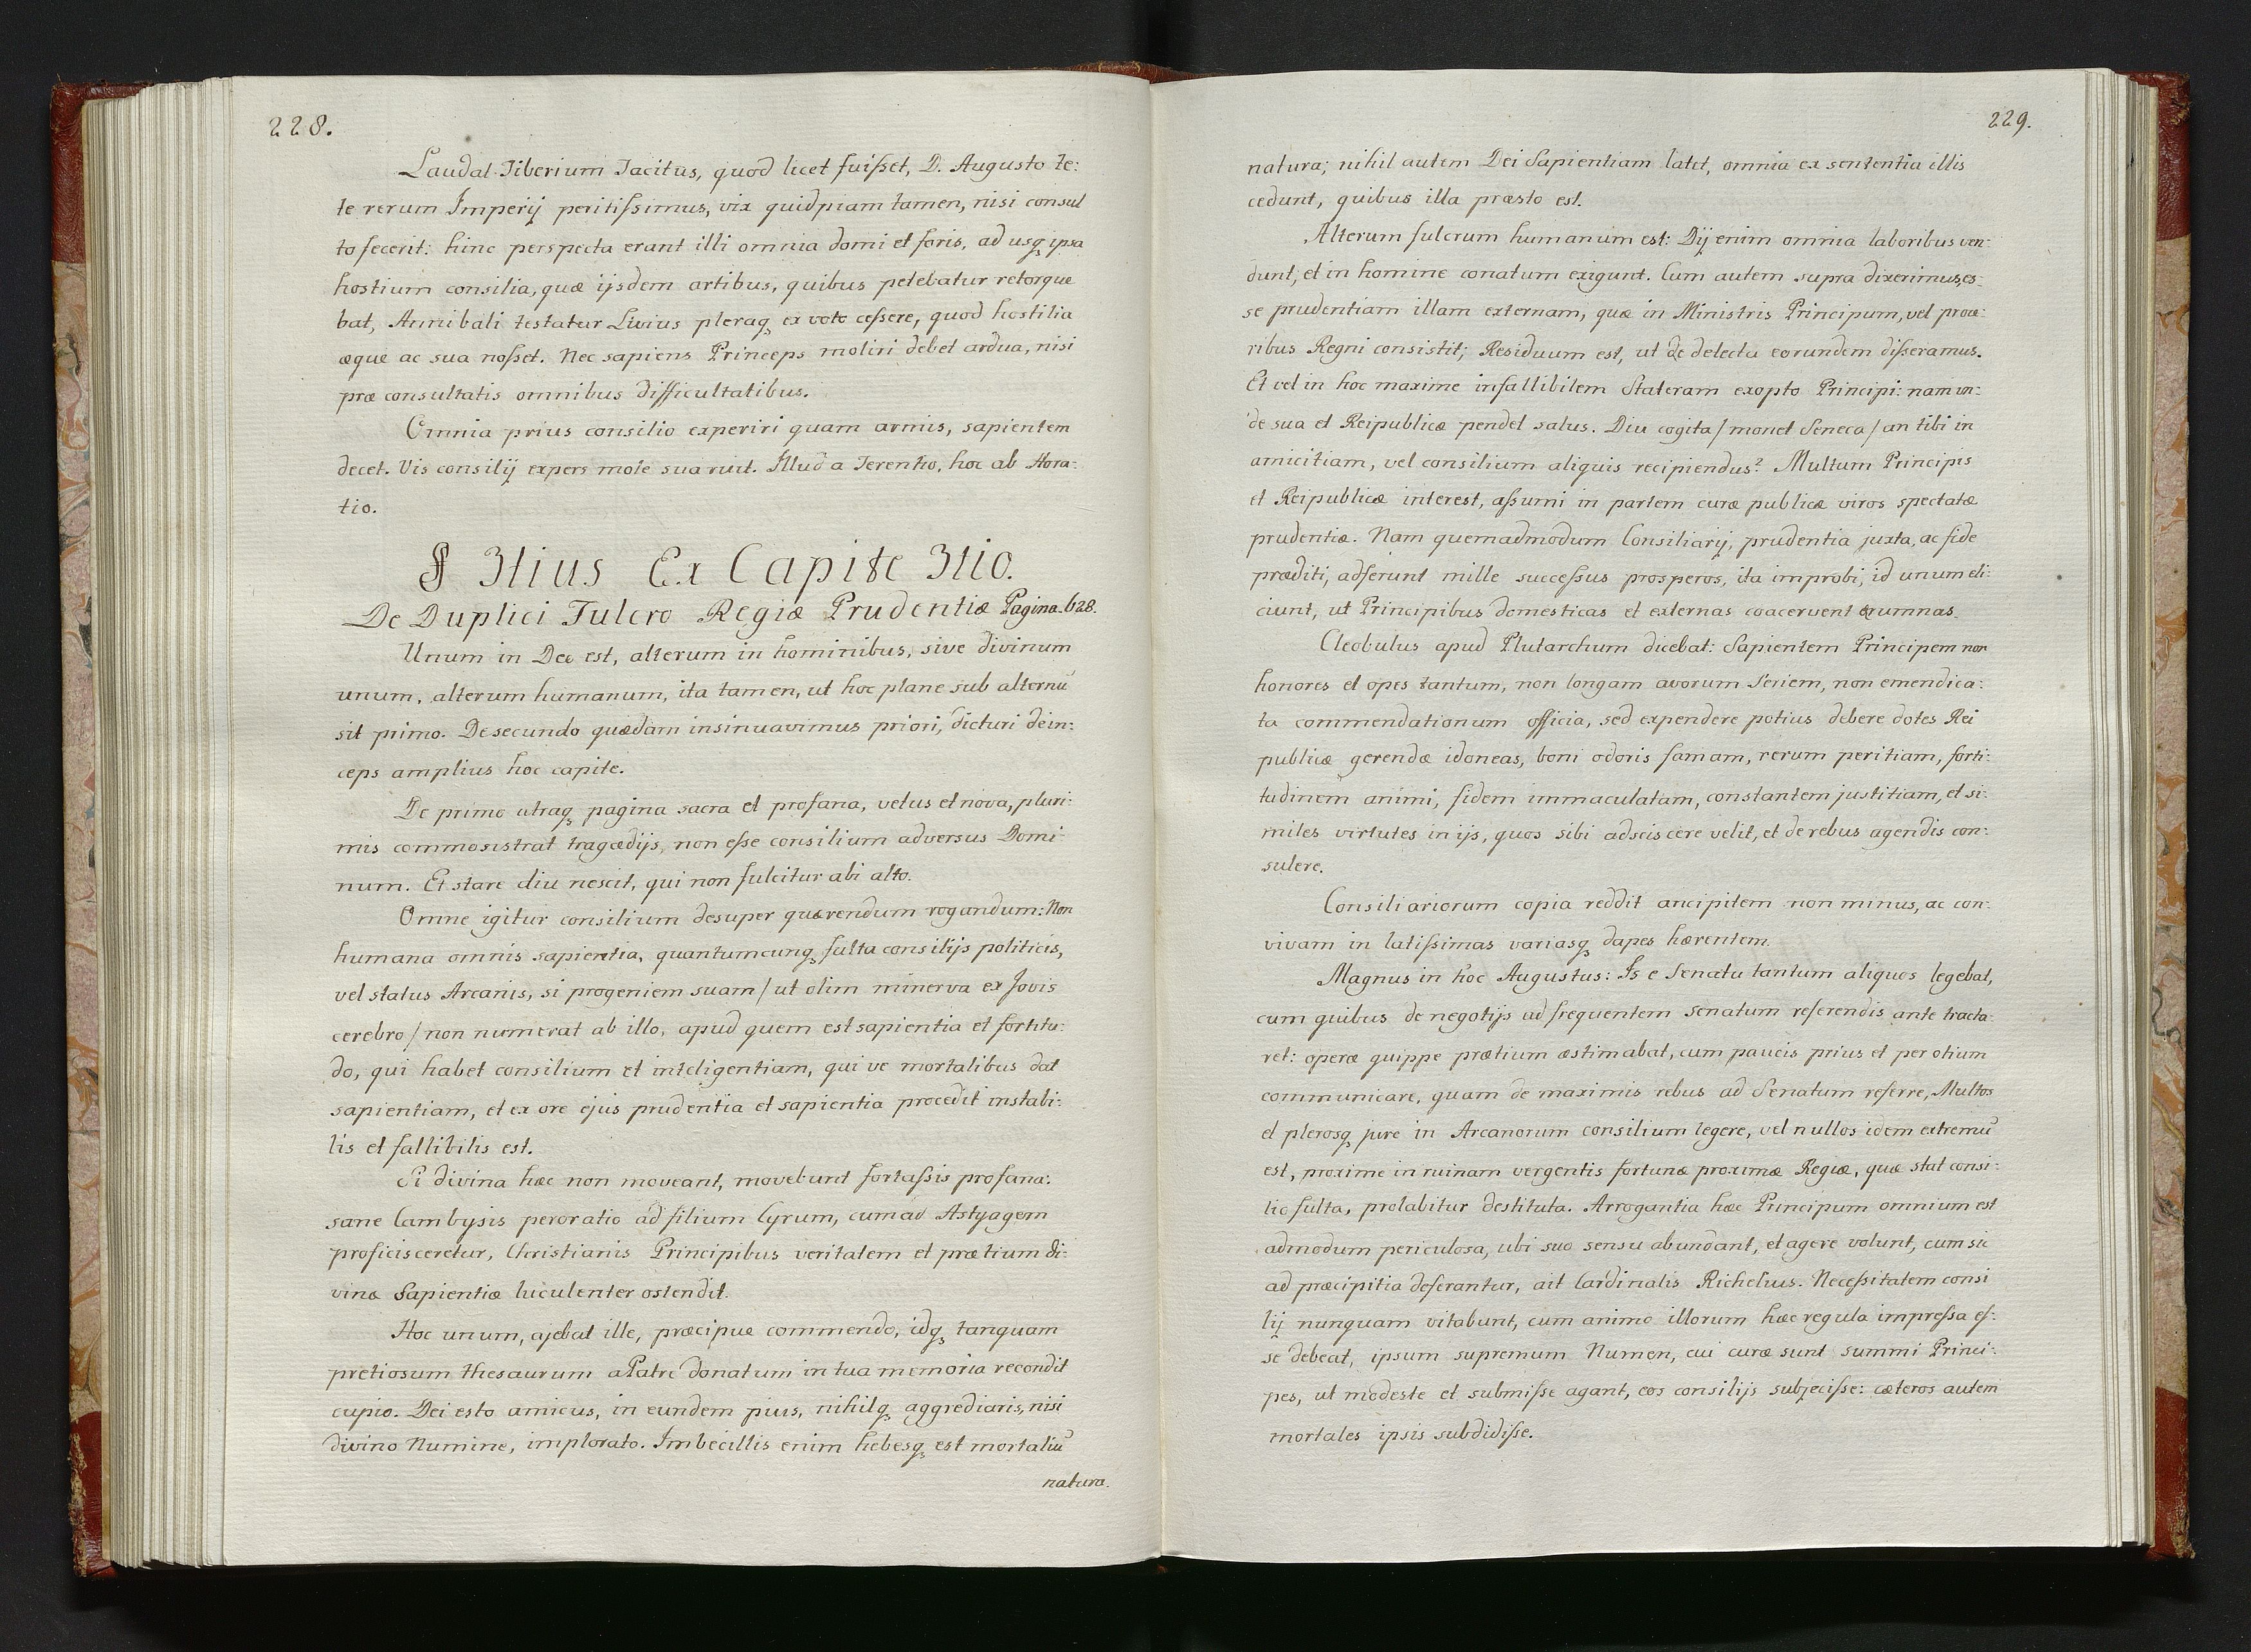 228.
Laudat Tiberium Tacitus, quod licet fuisset, D. Augusto te:
te rerum Imperij peritissimus, vix quidpiam tamen, nisi consul
to fecerit: hinc perspecta erant illi omnia domi et foris, ad usq ipsa
hostium consilia, quæ ijsdem artibus, quibus petebatur retorque
bat, Annibali testatur Livius pleraq ex voto cessere, quod hostilia
æque ac sua nosset. Nec sapiens Princeps moliri debet ardua, nisi
præ consultatis omnibus difficultatibus.
Omnia prius consilio experiri quam armis, sapientem
decet. Vis consilij expers mole sua ruit. Illud a Terentio, hoc ab Hora:
tio.
§ 3tius Ex Capite 3tio.
De Duplici Fulcro Regiæ Prudentiæ Pagina. 628.
Unum in Deo est, alterum in hominibus, sive divinum
unum, alterum humanum, ita tamen, ut hoc plane sub alternũ
sit primo. De secundo quædam insinuavimus priori, dicturi dein:
ceps amplius hoc capite.
De primo utraq pagina sacra et profana, vetus et nova, pluri:
mis commosistrat tragædijs, non esse consilium adversus Domi
num. Et stare diu nescit, qui non fulcitur abi alto.
Omne igitur consilium desuper quærendum rogandum: Non
humana omnis sapientia, quantumcunq fulta consilijs politicis,
vel status Arcanis, si progeniem suam / ut olim minerva ex Jovis
cerebro / non numerat ab illo, apud quem est sapientia et fortitu:
do, qui habet consilium et inteligentiam, qui ve mortalibus dat
sapientiam, et ex ore ejus prudentia et sapientia procedit instabi:
lis et fallibilis est.
Si divina hæc non moveant, movebunt fortassis profana:
sane Cambysis peroratio ad filium Cyrum, cum ad Astyagem
proficisceretur, Christianis Principibus veritatem et prætium di:
vinæ Sapientiæ luculenter ostendit.
Hoc unum, ajebat ille, præcipue commendo, idq tanquam
pretiosum thesaurum a Patre donatum in tua memoria recondit
cupio. Dei esto amicus, in eundem pius, nihilq aggrediaris, nisi
divino Numine, implorato. Imbecillis enim hebesq est mortaliũ
natura.
229.
natura; nihil autem Dei Sapientiam latet, omnia ex sententia illis
cedunt, quibus illa præsto est.
Alterum fulcrum humanum est: Dij enim omnia laboribus ven:
dunt, et in homine conatum exigunt. Cum autem supra dixerimus, es:
se prudentiam illam externam, quæ in Ministris Principum, vel proce:
ribus Regni consistit; Residuum est, ut de delectu eorundem disseramus.
Et vel in hoc maxime infallibilem Stateram exopto Principi: nam un:
de sua et Reipublicæ pendet salus. Diu cogita / monet Seneca / an tibi in
amicitiam, vel consilium aliquis recipiendus? Multum Principis
et Reipublicæ interest, assumi in partem curæ publicæ viros spectatæ
prudentiæ. Nam quemadmodum Consiliarij, prudentia juxta, ac fide
præditi, adferunt mille successus prosperos, ita improbi, id unum eli:
ciunt, ut Principibus domesticas et externas coacervent ærumnas.
Cleobulus apud Plutarchum dicebat: Sapientem Principem non
honores et opes tantum, non longam avorum Seriem, non emendica:
ta commendationum officia, sed expendere potius debere dotes Rei
publicæ gerendæ idoneas, boni odoris famam, rerum peritiam, forti:
tudinem animi, fidem immaculatam, constantem justitiam, et si:
miles virtutes in ijs, quos sibi adsciscere velit, et de rebus agendis con:
sulere.
Consiliariorum copia reddit ancipitem non minus, ac con:
vivam in latissimas variasq dapes hærentem.
Magnus in hoc Augustus: Is e Senatu tantum aliquos legebat,
cum quibus de negotijs ad frequentem Senatum referendis ante tracta
ret: operæ quippe prætium æstimabat, cum paucis prius et per otium
communicare, quam de maximis rebus ad Senatum referre, Multos
et plerosq jure in Arcanorum consilium legere, vel nullos idem extremũ
est, proxime in ruinam vergentis fortunæ proximæ Regiæ, quæ stat consi:
lio fulta, prolabitur destituta. Arrogantia hæc Principum omnium est
admodum periculosa, ubi suo sensu abundant, et agere volunt, cum sic
ad præcipitia deferantur, ait Cardinalis Richelius. Necessitatem consi
lij nunquam vitabunt, cum animo illorum hæc regula impressa es:
se debeat, ipsum supremum Numen, cui curæ sunt summi Princi:
pes, ut modeste et submisse agant, eos consilijs subjecisse: cæteros autem
mortales ipsis subdidisse.